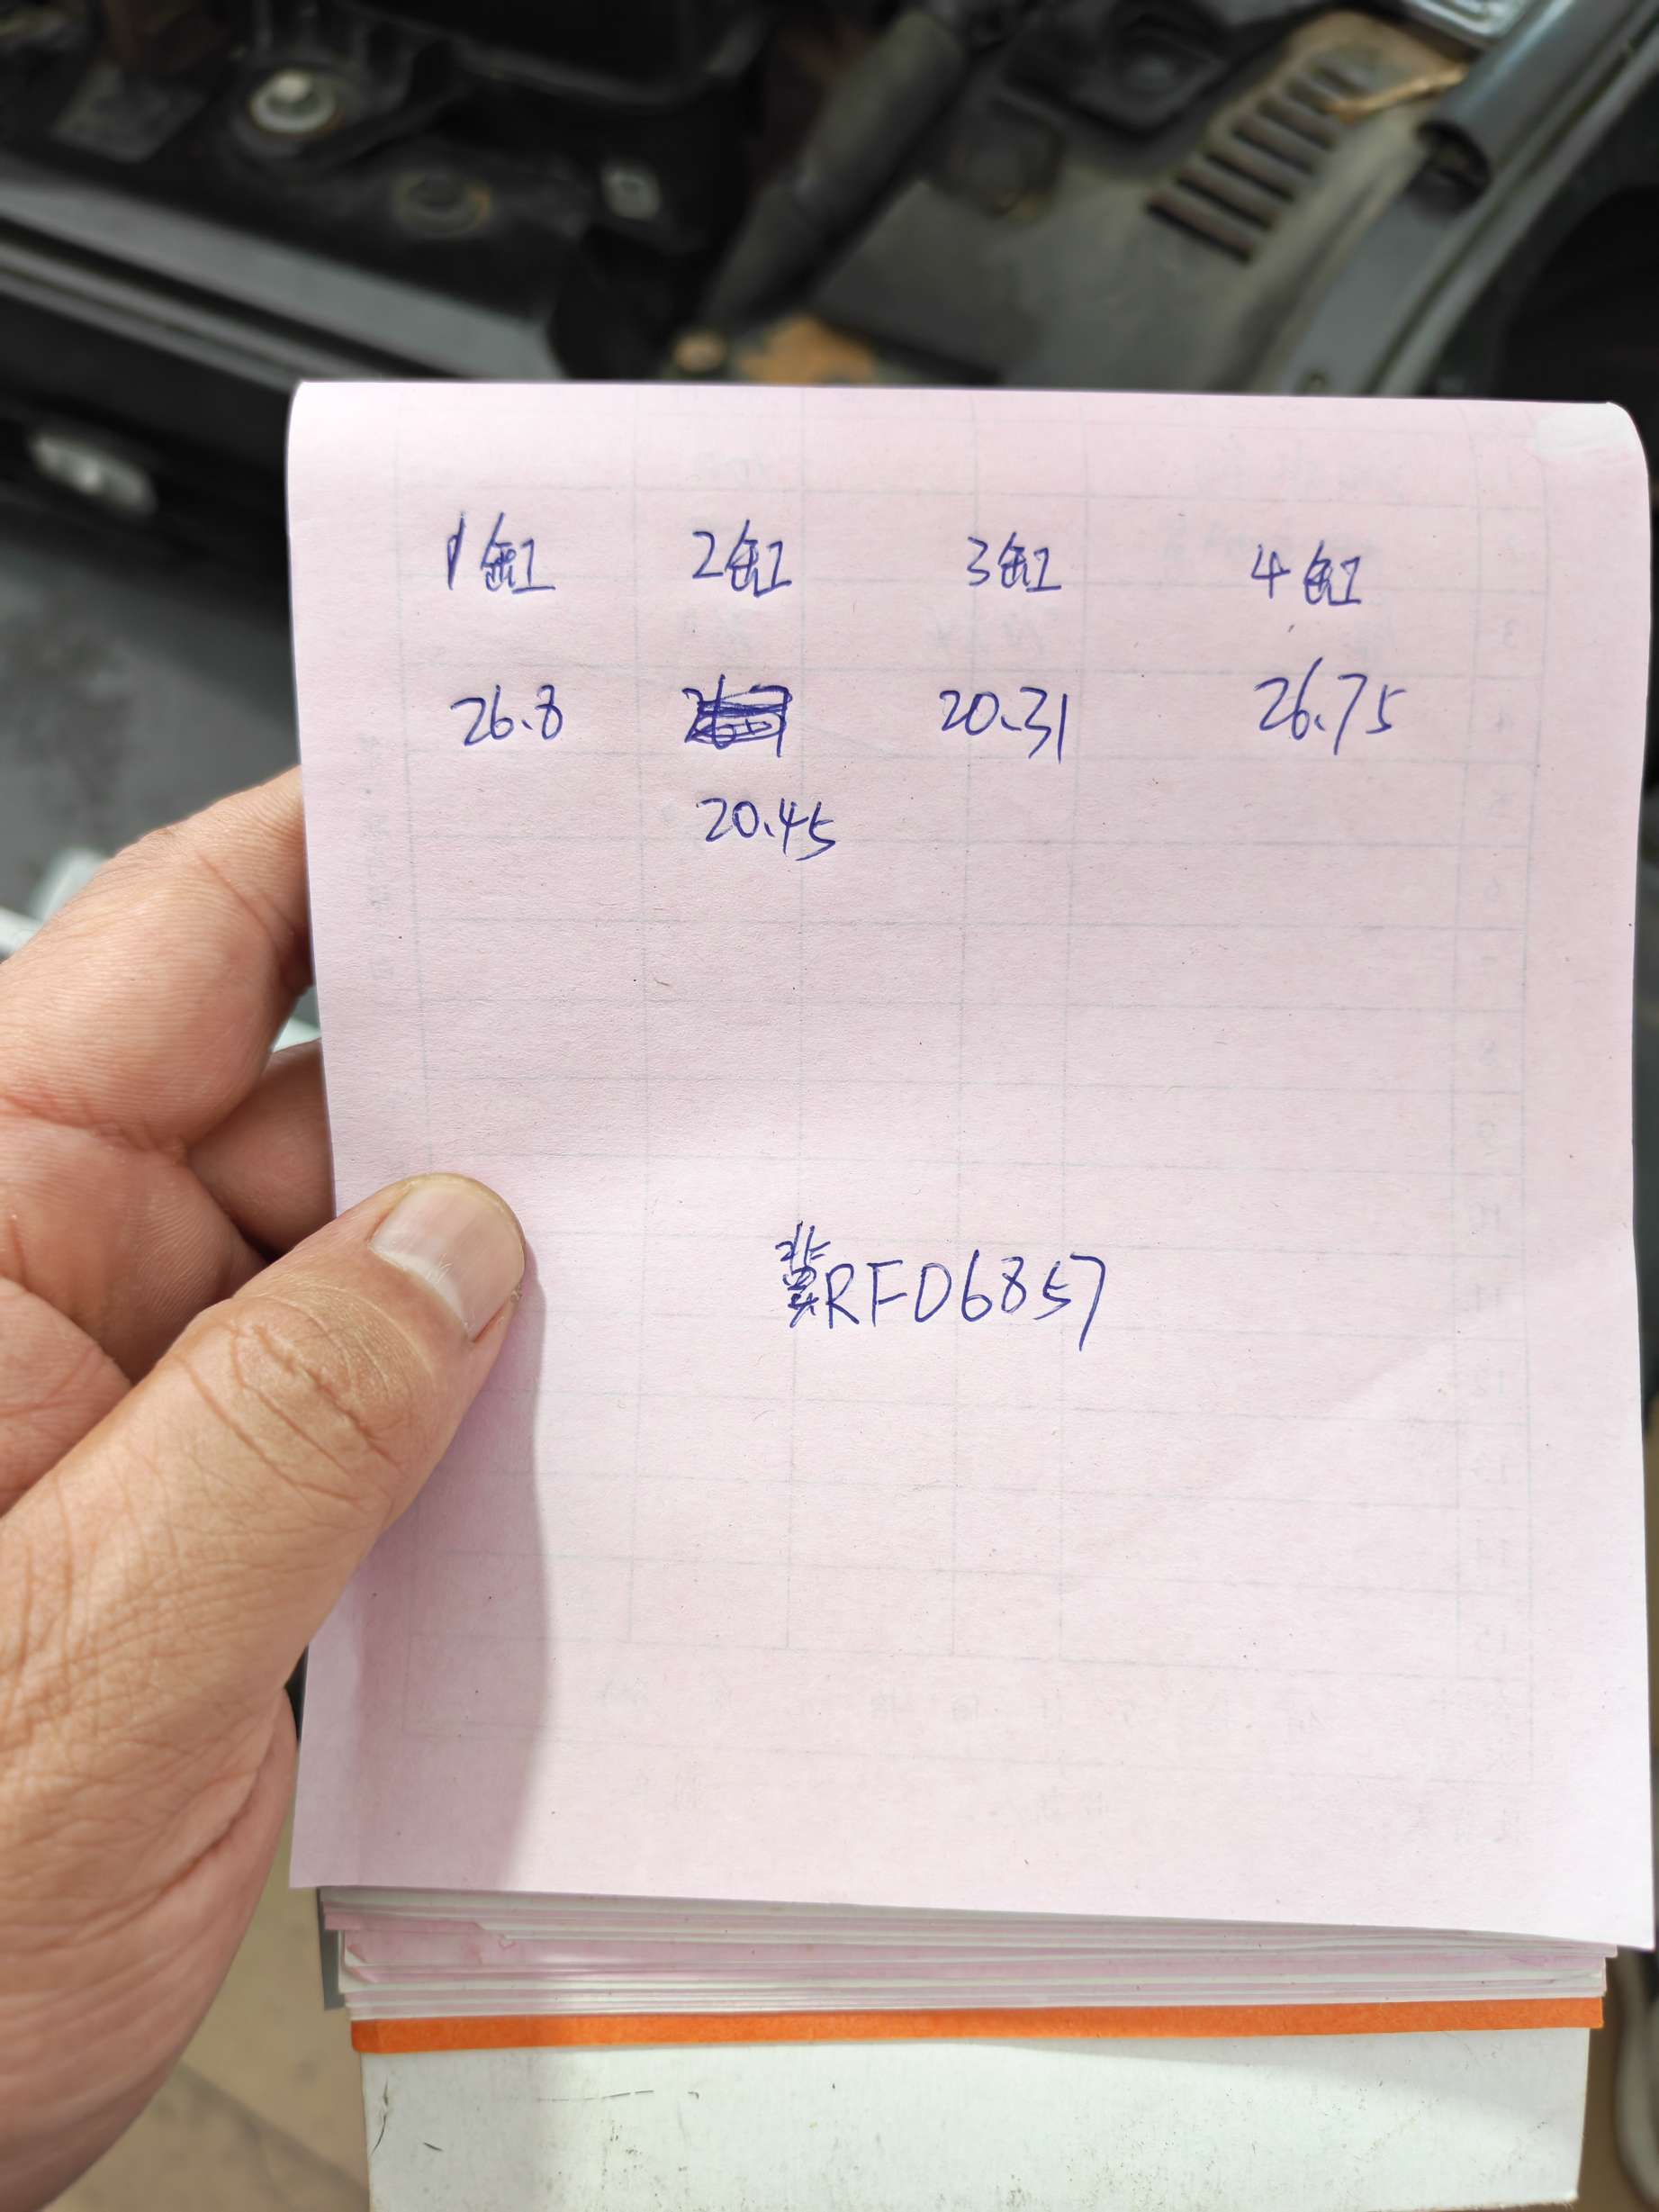 1缸 2缸 3缸 4缸
26.8 20.31 26.75
20.45
冀RFD6857